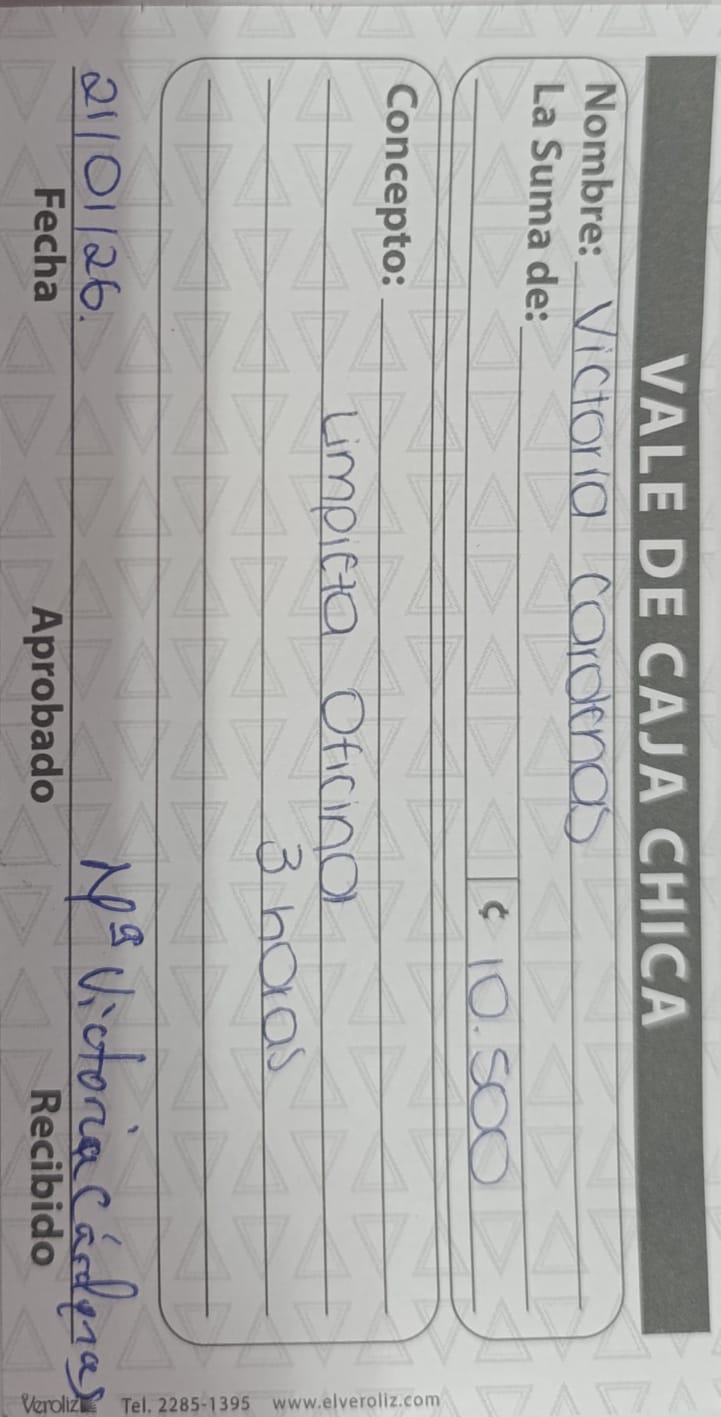 VALE DE CAJA CHICA
Nombre: Victoria Cardenas
La Suma de:
¢ 10.500
Concepto:
Limpieza Oficina
3 horas
21/01/26. Mª Victoria Cárdenas
Fecha Aprobado Recibido
Veroliz Tel. 2285-1395 www.elveroliz.com